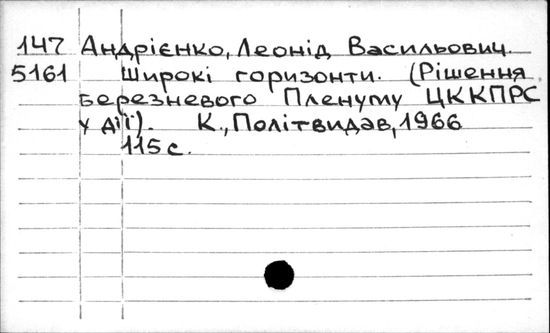 147 Андрієнко, Леонід Васильович.
5161 Широкі горизонти. (Рішення
березневого Пленуму ЦККПРС
у дії). К., Політвидав, 1966
115 с.